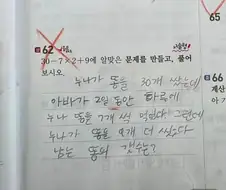 65
62
30-7×2+9에 알맞은 문제를 만들고, 풀어
보시오.
누나가 똥을 30개 쌌는데
아빠가 2일 동안 하루에
누나 똥을 7개 씩 먹었다 그런데
누나가 똥을 9개 더 쌌다
남는 똥의 갯수는?
66
계산